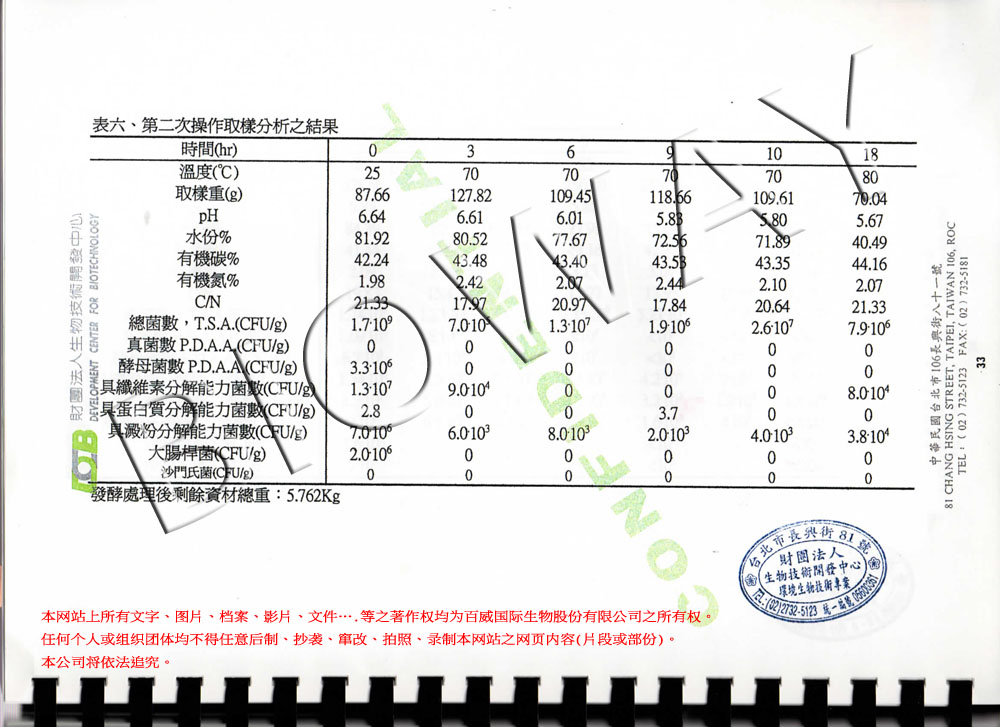 表六、第二次操作取樣分析之結果
時間(hr) 0 3 6 9 10 18
溫度(℃) 25 70 70 70 70 80
取樣重(g) 87.66 127.82 109.45 118.66 109.61 70.04
pH 6.64 6.61 6.01 5.83 5.80 5.67
水份% 81.92 80.52 77.67 72.56 71.89 40.49
有機碳% 42.24 43.48 43.40 43.53 43.35 44.16
有機氮% 1.98 2.42 2.07 2.44 2.10 2.07
C/N 21.33 17.97 20.97 17.84 20.64 21.33
總菌數，T.S.A.(CFU/g) 1.7·10⁹ 7.0·10⁵ 1.3·10⁷ 1.9·10⁶ 2.6·10⁷ 7.9·10⁶
真菌數 P.D.A.A.(CFU/g) 0 0 0 0 0 0
酵母菌數 P.D.A.A.(CFU/g) 3.3·10⁶ 0 0 0 0 0
具纖維素分解能力菌數(CFU/g) 1.3·10⁷ 9.0·10⁴ 0 0 0 8.0·10⁴
具蛋白質分解能力菌數(CFU/g) 2.8 0 0 3.7 0 0
具澱粉分解能力菌數(CFU/g) 7.0·10⁶ 6.0·10³ 8.0·10³ 2.0·10³ 4.0·10³ 3.8·10⁴
大腸桿菌(CFU/g) 2.0·10⁶ 0 0 0 0 0
沙門氏菌(CFU/g) 0 0 0 0 0 0
發酵處理後剩餘資材總重：5.762Kg
BIOWAY
CONFIDENTIAL
財團法人生物技術開發中心
DEVELOPMENT CENTER FOR BIOTECHNOLOGY
DCB
中華民國台北市106長興街八十一號
81 CHANG HSING STREET, TAIPEI, TAIWAN 106, ROC
TEL：( 02 ) 732-5123 FAX:( 02 ) 732-5181
33
台北市長興街81號
財團法人
生物技術開發中心
環境生物技術專業
TEL:(02)2732-5123 統一編號
本网站上所有文字、图片、档案、影片、文件….等之著作权均为百威国际生物股份有限公司之所有权。
任何个人或组织团体均不得任意后制、抄袭、窜改、拍照、录制本网站之网页内容(片段或部份)。
本公司将依法追究。